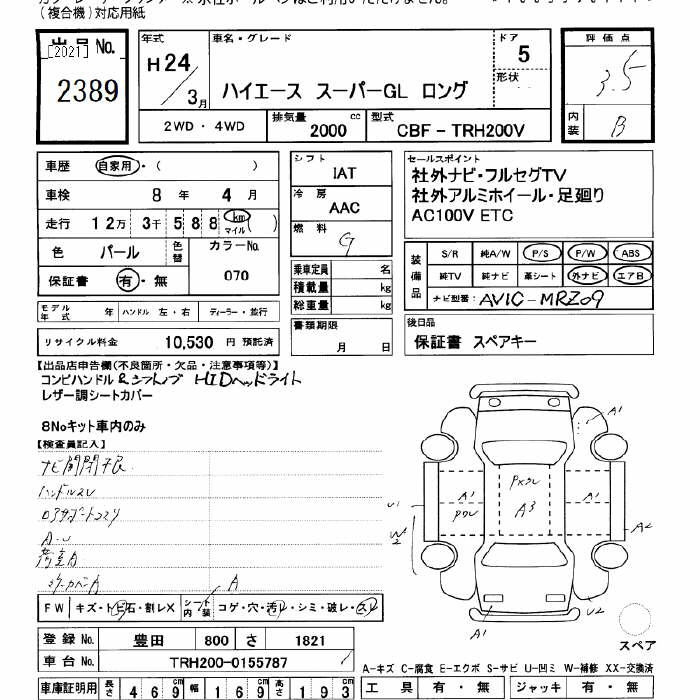 (複合機)対応用紙
出品No.
[2021]
2389
年式
H24/3月
車名・グレード
ハイエース スーパーGL ロング
ドア
5
形状
評価点
3.5
内装
B
2WD・4WD
排気量
2000 cc
型式
CBF-TRH200V
車歴
自家用・( )
車検
8年 4月
走行
12万3千588 km マイル ( )
色
パール
色替
カラーNo.
070
保証書
有・無
シフト
IAT
冷房
AAC
燃料
G
乗車定員 名
積載量 kg
総重量 kg
セールスポイント
社外ナビ・フルセグTV
社外アルミホイール・足廻り
AC100V ETC
装備品
S/R 純A/W P/S P/W ABS
純TV 純ナビ 革シート 外ナビ エアB
ナビ型番: AVIC-MRZ09
モデル年式 年 ハンドル 左・右 ディーラー・並行
リサイクル料金 10,530 円 預託済
書類期限
月 日
後日品
保証書 スペアキー
【出品店申告欄(不良箇所・欠品・注意事項等)】
コンビハンドル&シフトノブ HIDヘッドライト
レザー調シートカバー
8Noキット車内のみ
【検査員記入】
ナビ開閉不良
ハンドルスレ
A-U
荷室A
A
FW キズ・トビ石・割レX
シート内装 コゲ・穴・汚レ・シミ・破レ・スレ
A1
A1
A1
A3
U1
W2
A2
U2
A1
スペア
登録No. 豊田 800 さ 1821
車台No. TRH200-0155787
A-キズ C-腐食 E-エクボ S-サビ U-凹ミ W-補修 XX-交換済
車庫証明用 長さ 469cm 幅 169cm 高さ 193cm
工具 有・無 ジャッキ 有・無